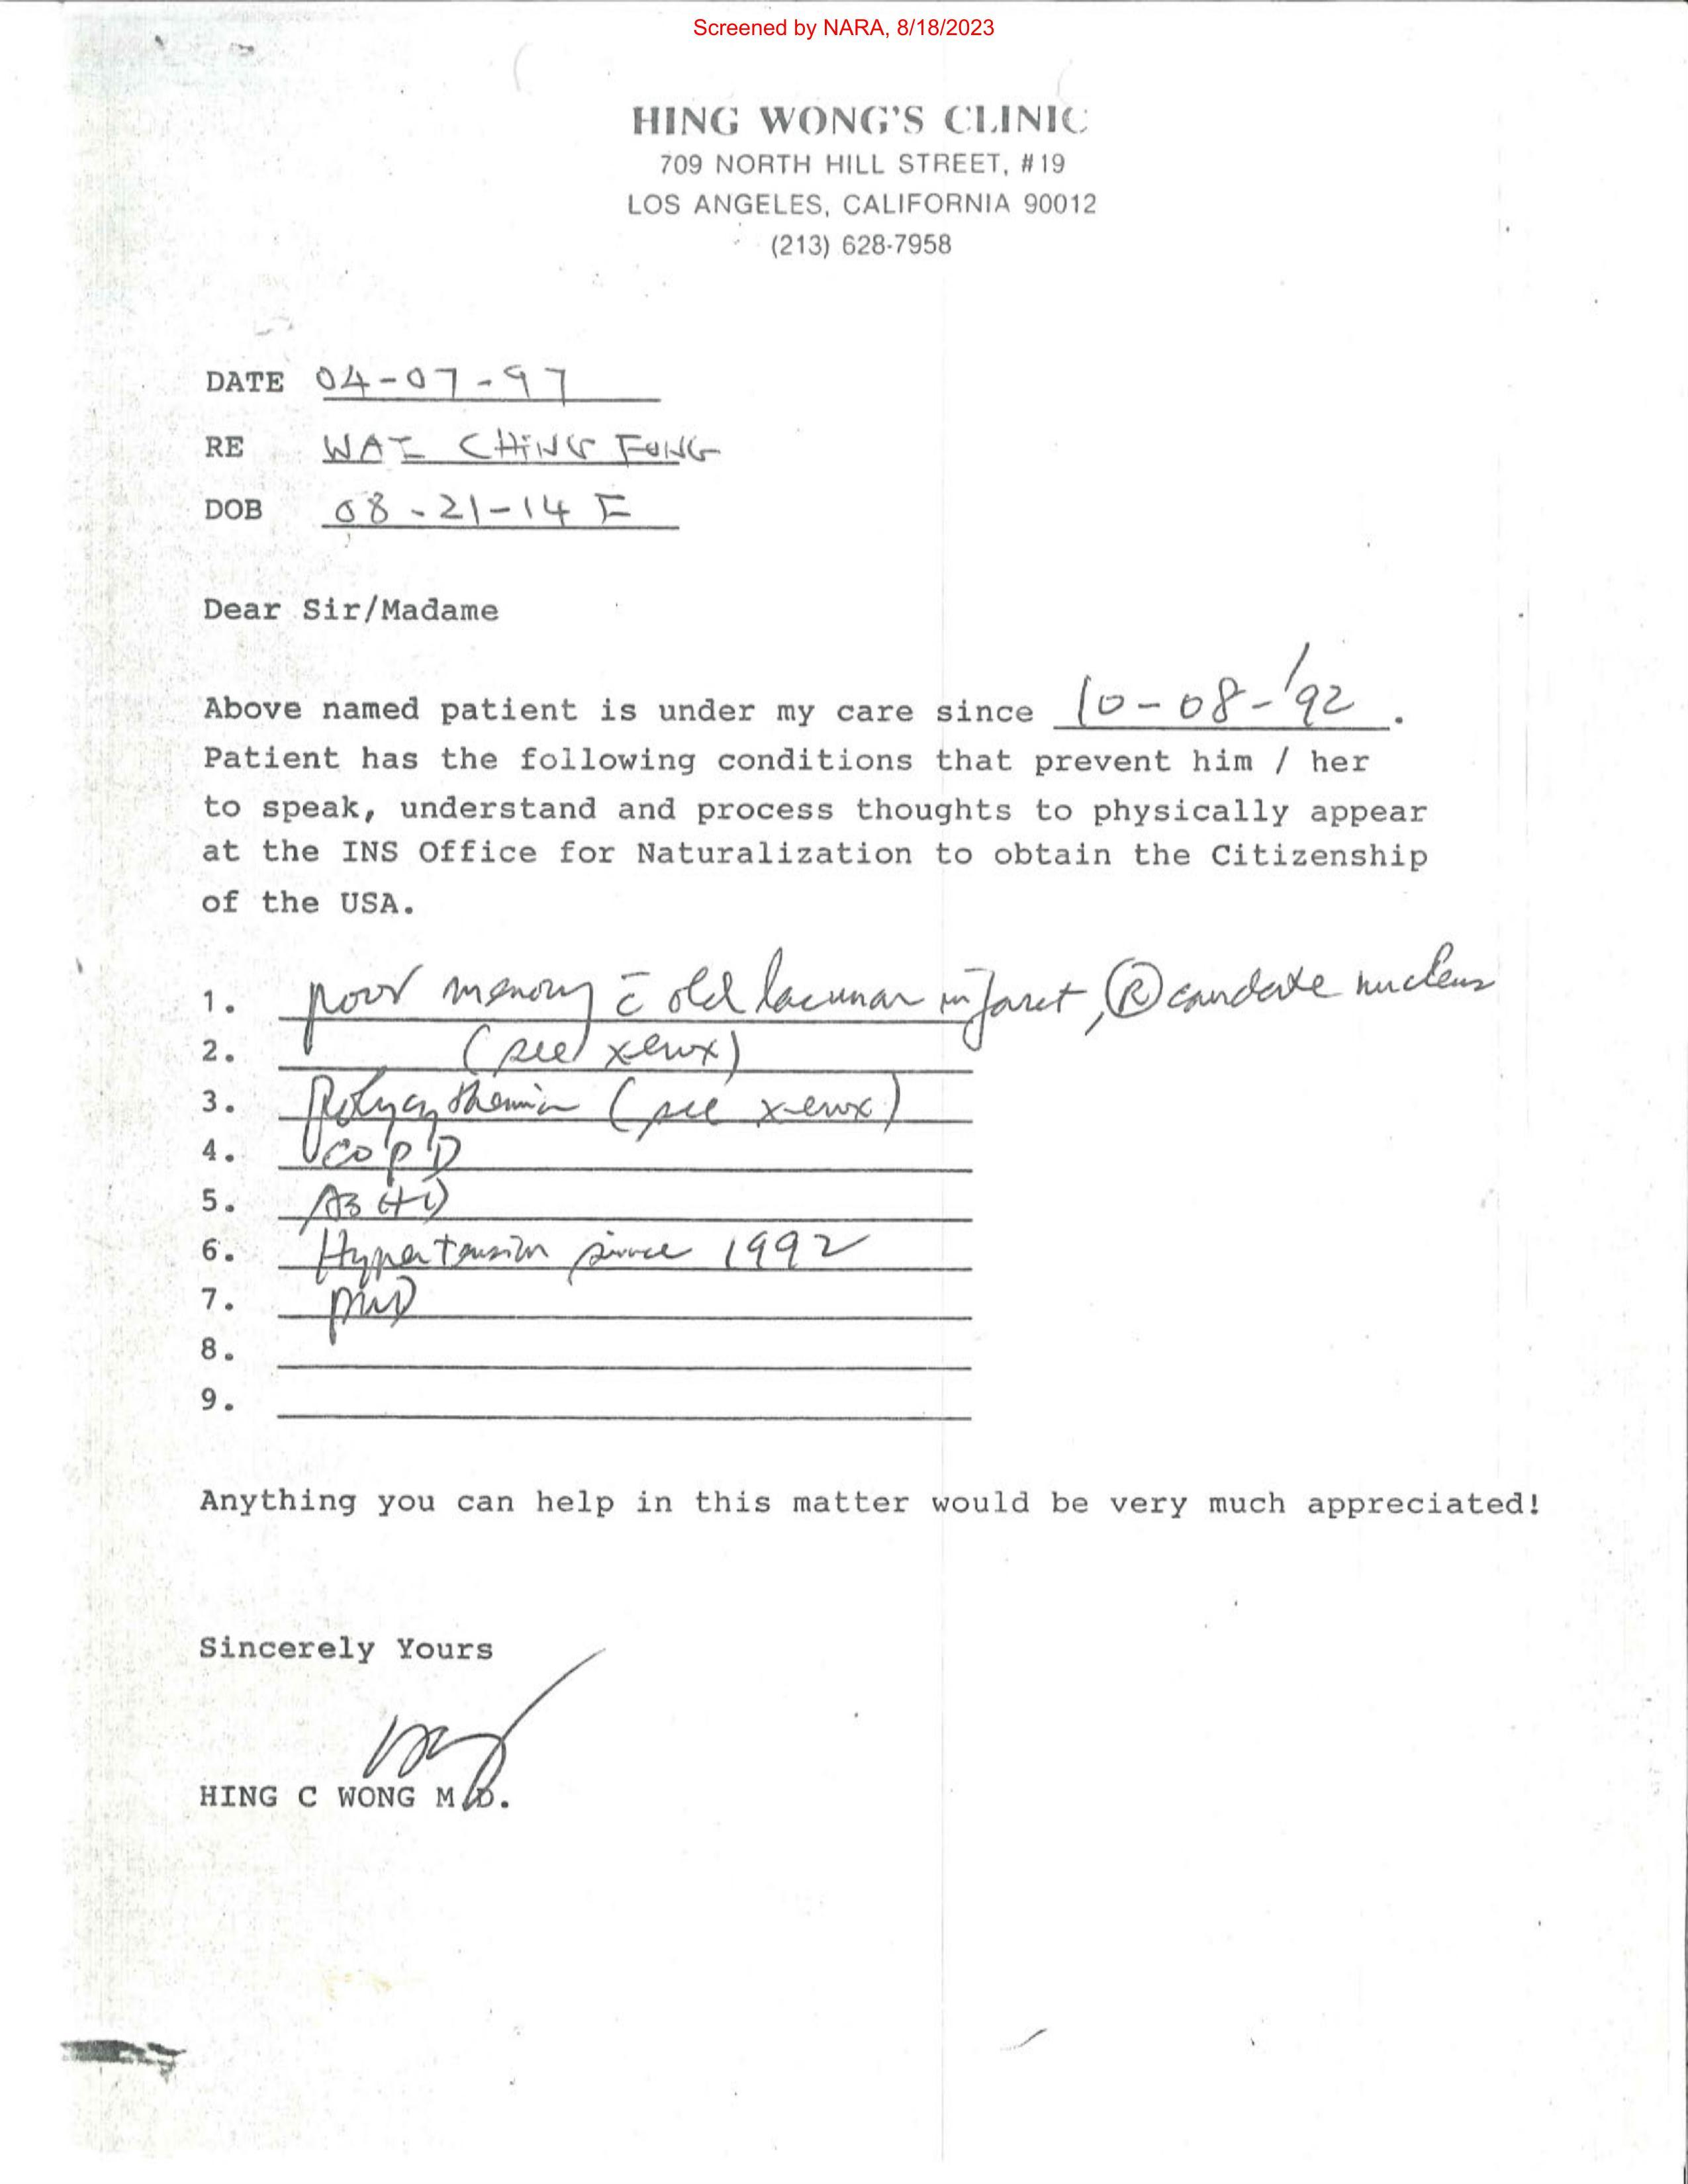 Screened by NARA, 8/18/2023
HING WONG'S CLINIC
709 NORTH HILL STREET, #19
LOS ANGELES, CALIFORNIA 90012
(213) 628-7958
DATE 04-07-97
RE WAI CHING FONG
DOB 08-21-14 F
Dear Sir/Madame
Above named patient is under my care since 10-08-'92.
Patient has the following conditions that prevent him / her
to speak, understand and process thoughts to physically appear
at the INS Office for Naturalization to obtain the Citizenship
of the USA.
1. poor memory c̄ old lacunar infarct, Ⓡ caudate nucleus
2. (see xerox)
3. Polycythemia (see xerox)
4. COPD
5.
6. Hypertension since 1992
7.
8.
9.
Anything you can help in this matter would be very much appreciated!
Sincerely Yours
HING C WONG M.D.